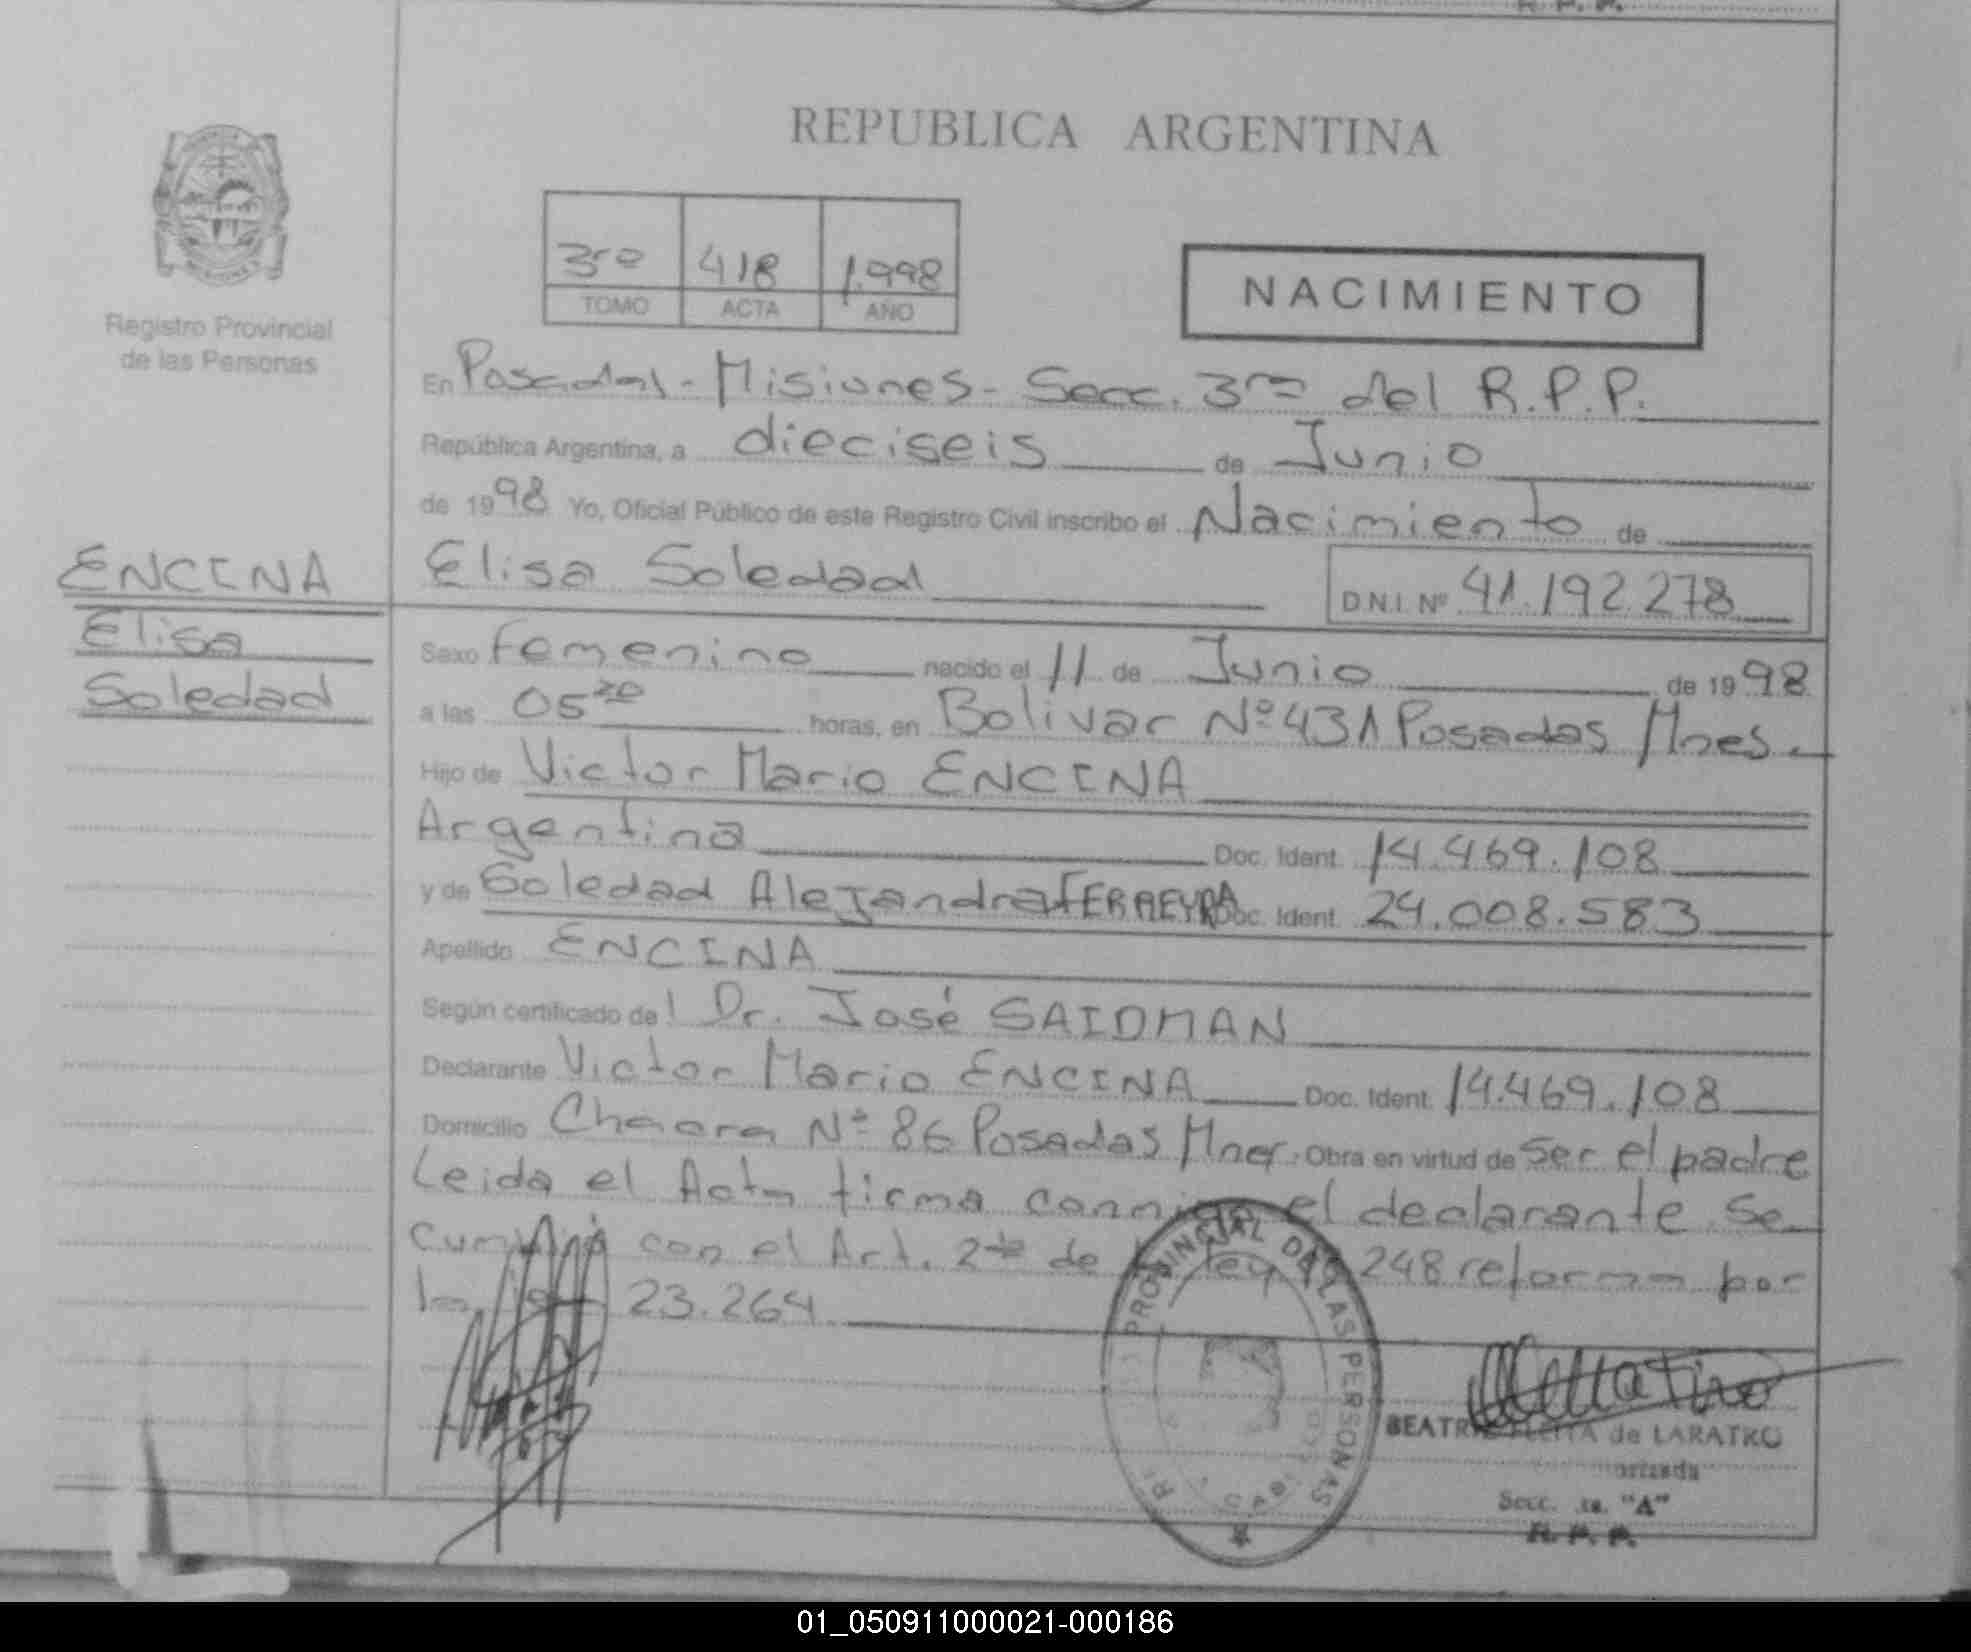 R. P. P.
REPUBLICA ARGENTINA
3ro 418 1.998
TOMO ACTA AÑO
NACIMIENTO
Registro Provincial
de las Personas
En Posadas - Misiones - Secc. 3ra del R.P.P.
República Argentina, a dieciseis de Junio
de 1998 Yo, Oficial Público de este Registro Civil inscribo el Nacimiento de
ENCINA
Elisa
Soledad
Elisa Soledad D.N.I. Nº 41.192.278
Sexo femenino nacido el 11 de Junio de 1998
a las 05 20 horas, en Bolivar Nº 431 Posadas Mnes.
Hijo de Victor Mario ENCINA
Argentina Doc. Ident. 14.469.108
y de Soledad Alejandra FERREYRA Doc. Ident. 24.008.583
Apellido ENCINA
Según certificado de l Dr. José SAIDMAN
Declarante Victor Mario ENCINA Doc. Ident. 14.469.108
Domicilio Chacra Nº 86 Posadas Mnes. Obra en virtud de ser el padre
Leida el Acta firma conmigo el declarante se
cumplió con el Art. 2do de la ley 18.248 reforma por
la ley 23.264
PROVINCIAL DE LAS PERSONAS
BEATRIZ de LARATRO
Secc. "A"
R. P. P.
01_050911000021-000186